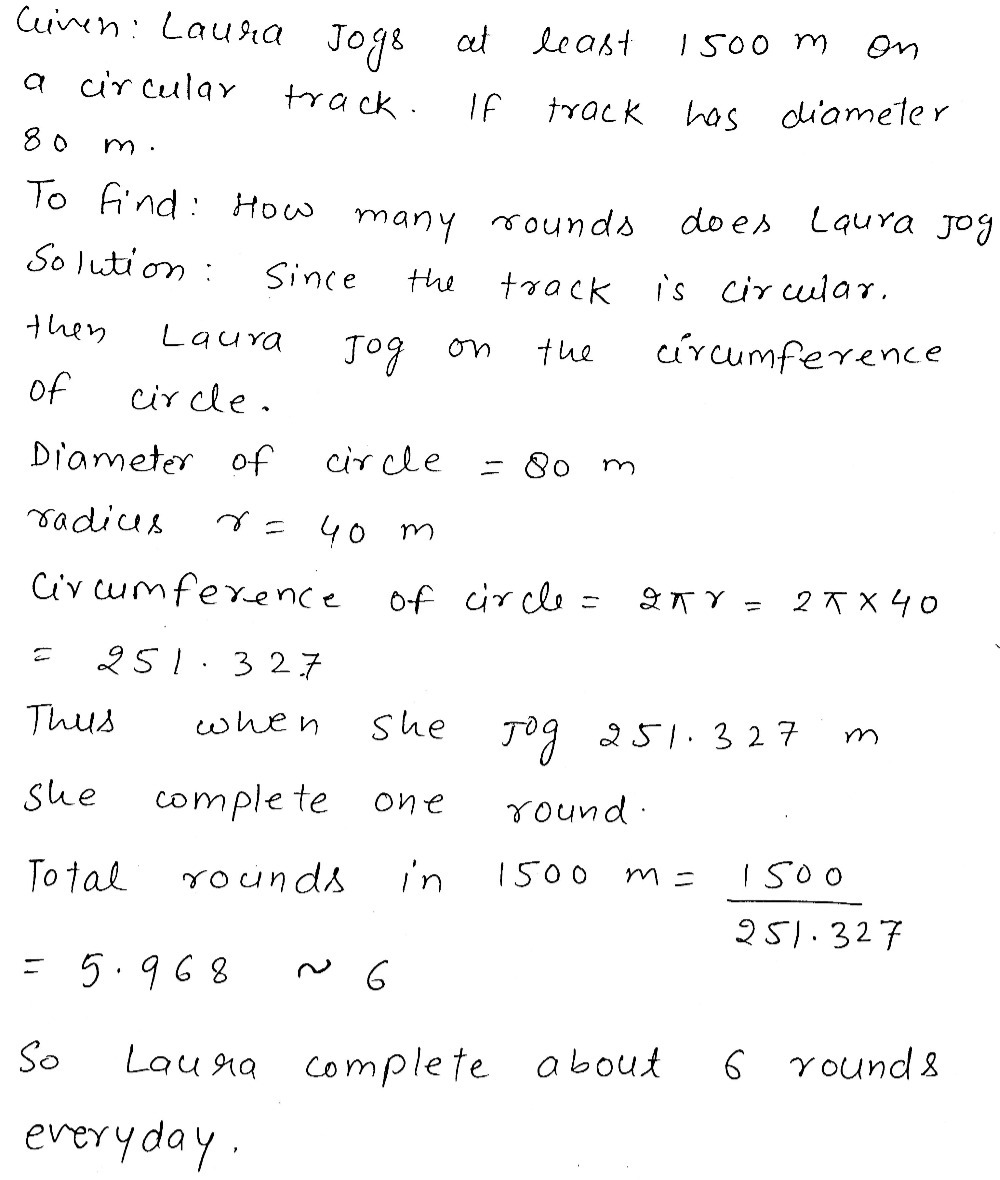 Given: Laura Jogs at least 1500 m on
a circular track. If track has diameter
80 m.
To find: How many rounds does Laura Jog
Solution: Since the track is circular.
then Laura Jog on the circumference
of circle.
Diameter of circle = 80 m
radius r = 40 m
Circumference of circle = 2πr = 2π×40
= 251.327
Thus when she Jog 251.327 m
she complete one round.
Total rounds in 1500 m = 1500
251.327
= 5.968 ~ 6
So Laura complete about 6 rounds
everyday.